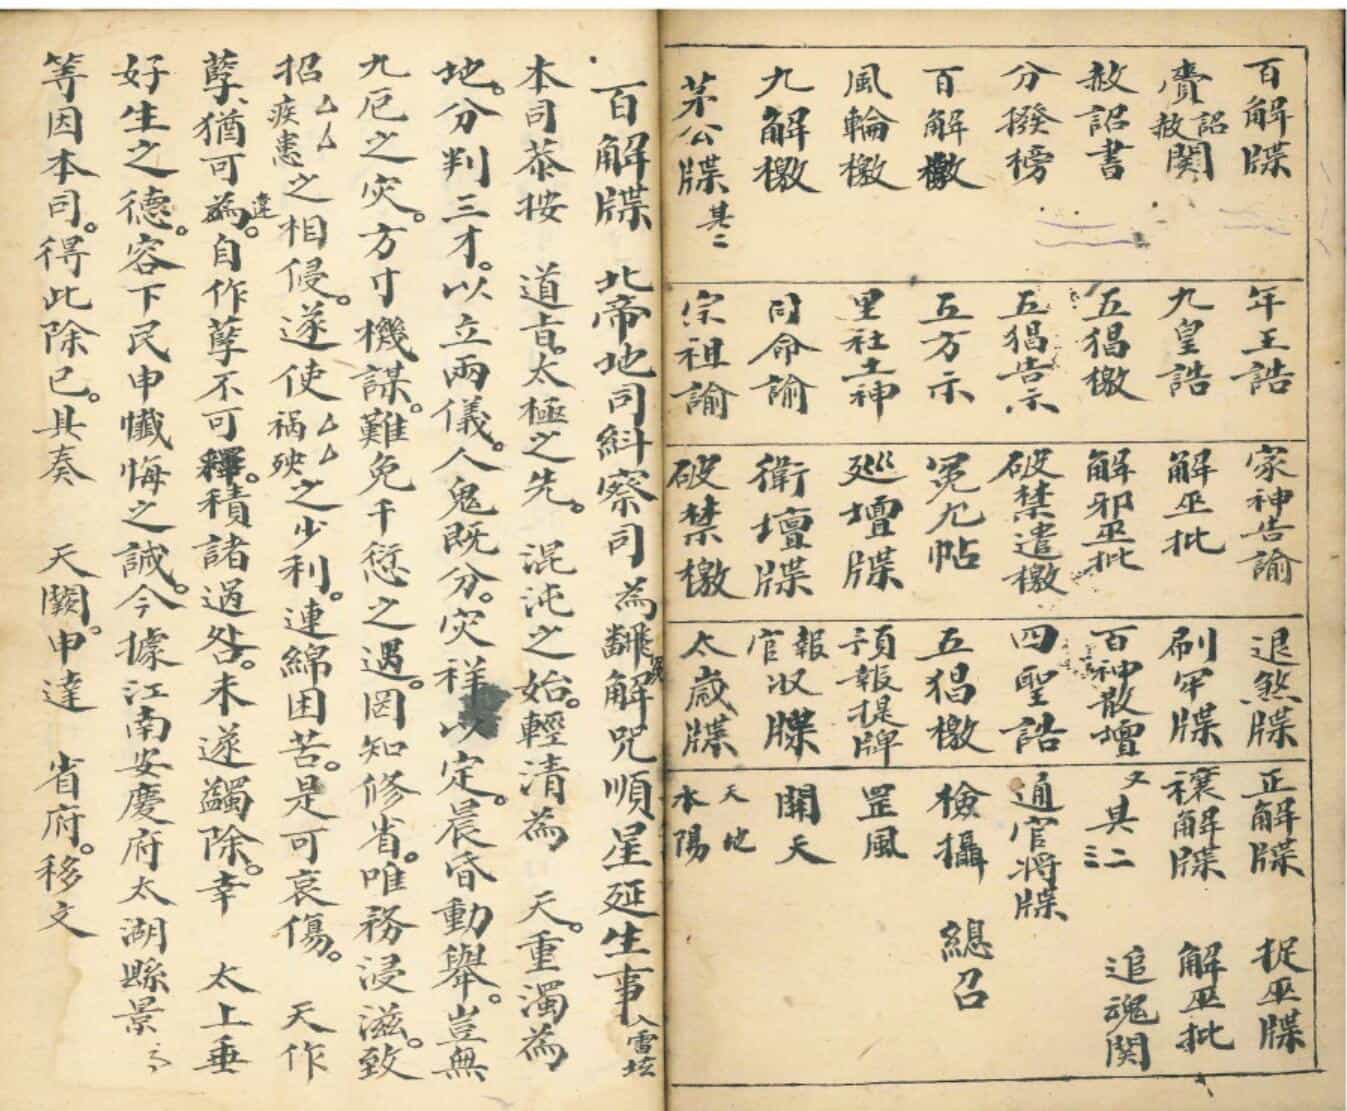 百解牒
賫詔赦関
赦詔書
分撥榜
百解檄
風輪檄
九解檄
茅公牒其二
年王誥
九皇誥
五猖檄
五猖告示
五方示
里社土神
司命諭
宗祖諭
家神告諭
解巫批
解邪巫批
破禁遣檄
冤九帖
廵壇牒
衛壇牒
破禁檄
退煞牒
刷牢牒
百神散壇
四聖誥
五猖檄
預報提牌
報汝官牒
太歲牒
正解牒
禳解牒
又其二三
通官将牒
檢攝
罡風
開天
天地水陽
捉巫牒
解巫批
追魂関
總召
百解牒 北帝地司糾察司為飜解咒順星延生事入雷坛
本司恭按 道旨。太極之先。混沌之始。輕清為 天。重濁為
地。分判三才。以立兩儀。人鬼既分。灾祥以定。晨昏動舉。豈無
九厄之灾。方寸機謀。難免千愆之遇。罔知修省。唯務浸滋。致
招厶厶疾患之相侵。遂使厶厶禍殃之少利。連綿困苦。是可哀傷。 天作
孽。猶可為違。自作孽不可釋。積諸過咎。未遂蠲除。幸 太上垂
好生之德。容下民申懺悔之誠。今據江南安慶府太湖縣景
等因本司。得此除已。具奏 天闕。申達 省府。移文